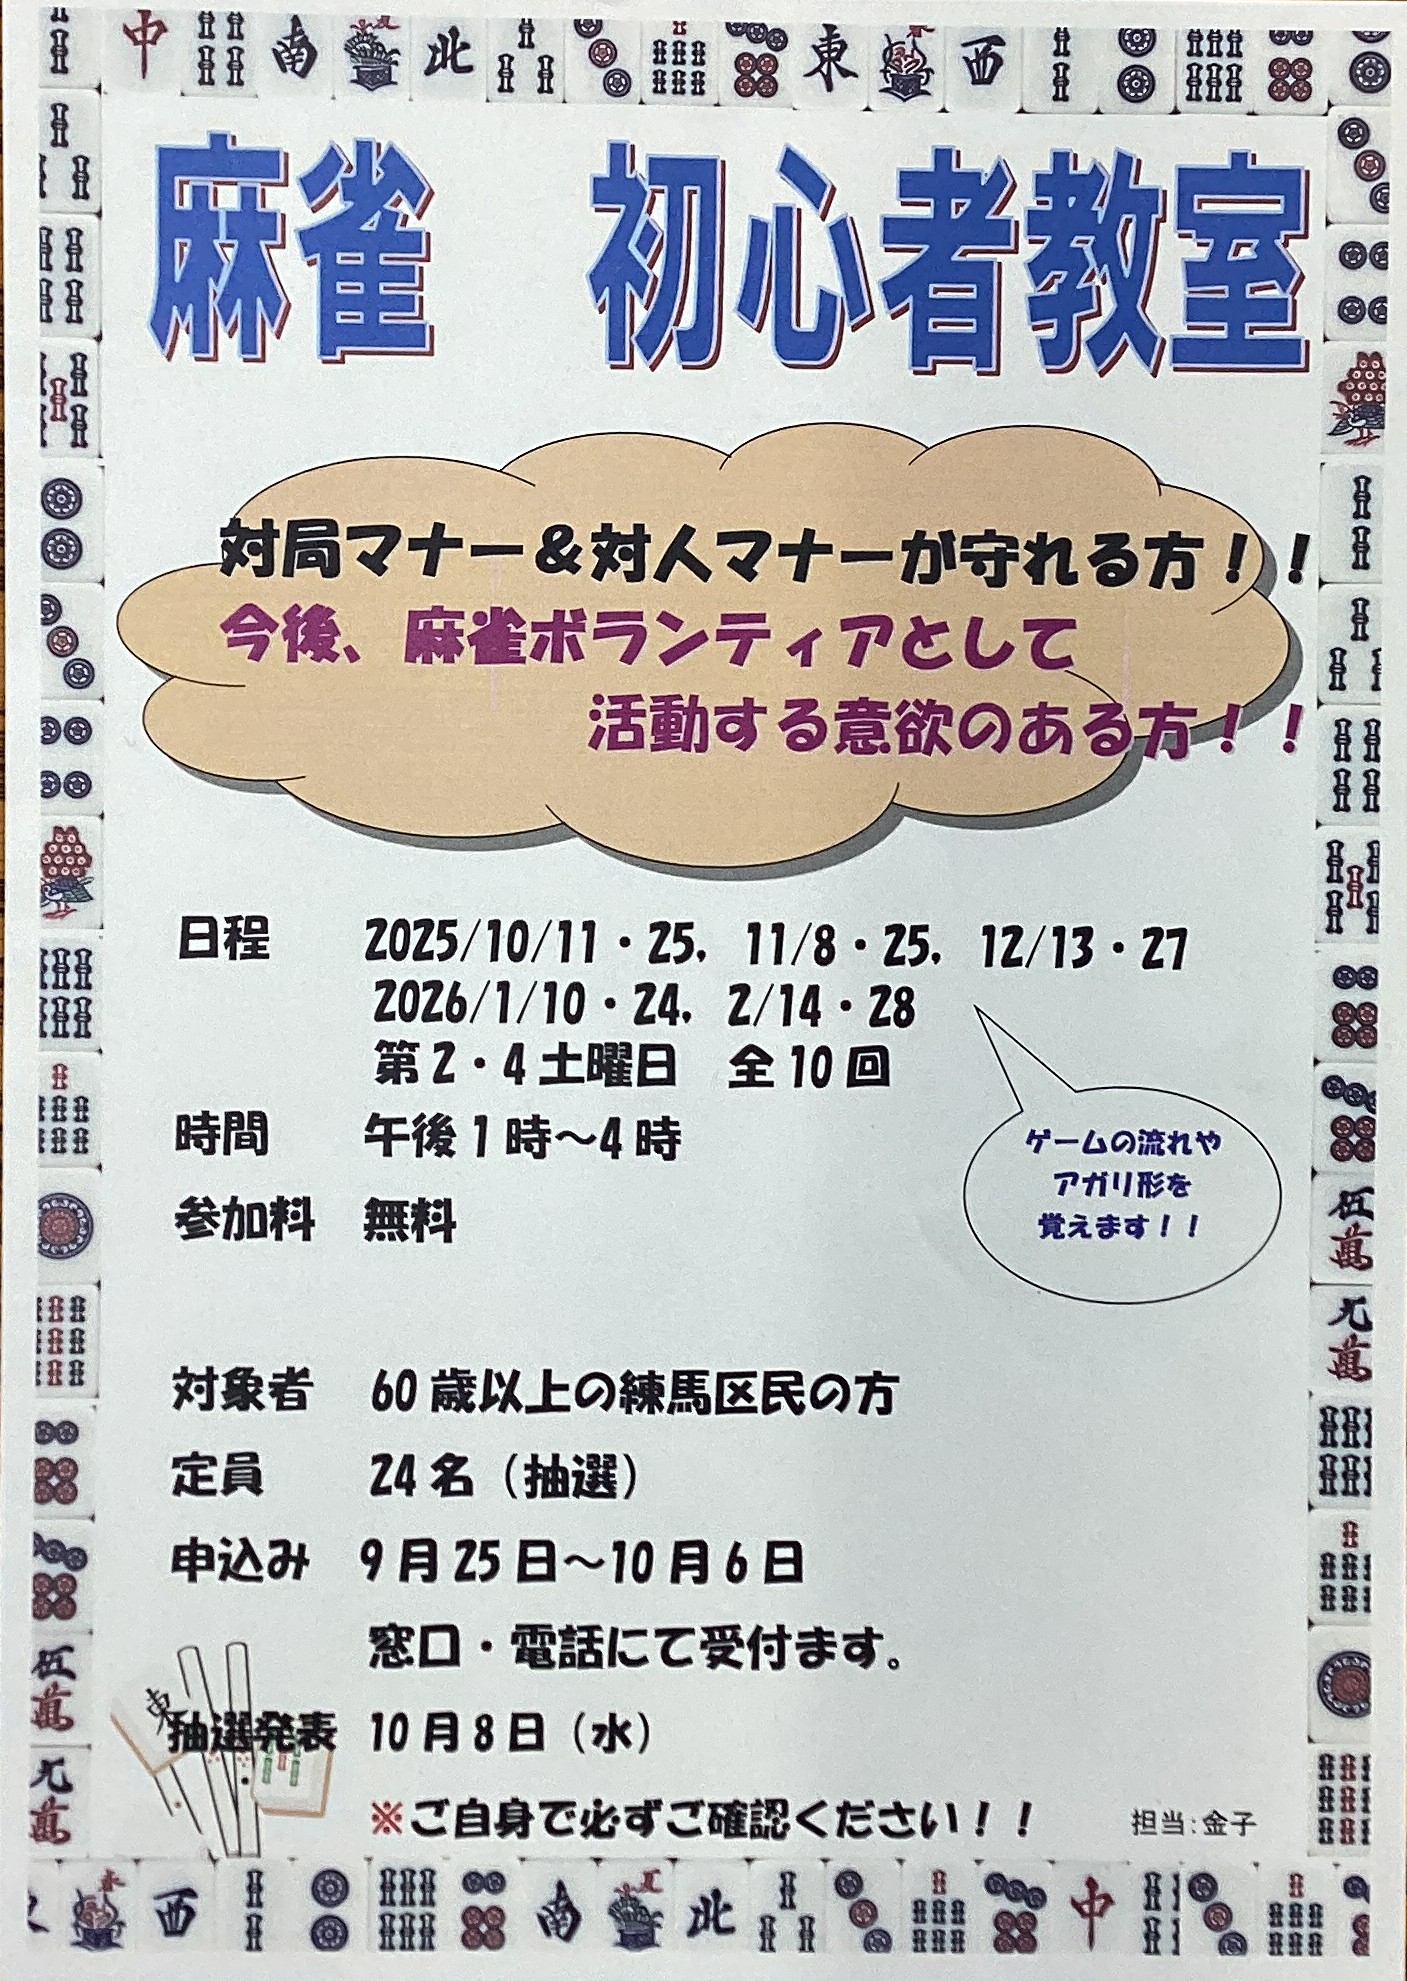 麻雀　初心者教室
対局マナー＆対人マナーが守れる方！！
今後、麻雀ボランティアとして
活動する意欲のある方！！
日程　2025/10/11・25，11/8・25，12/13・27
2026/1/10・24，2/14・28
第2・4土曜日　全10回
時間　午後1時～4時
参加料　無料
ゲームの流れや
アガリ形を
覚えます！！
対象者　60歳以上の練馬区民の方
定員　24名（抽選）
申込み　9月25日～10月6日
窓口・電話にて受付ます。
抽選発表　10月8日（水）
※ご自身で必ずご確認ください！！
担当：金子